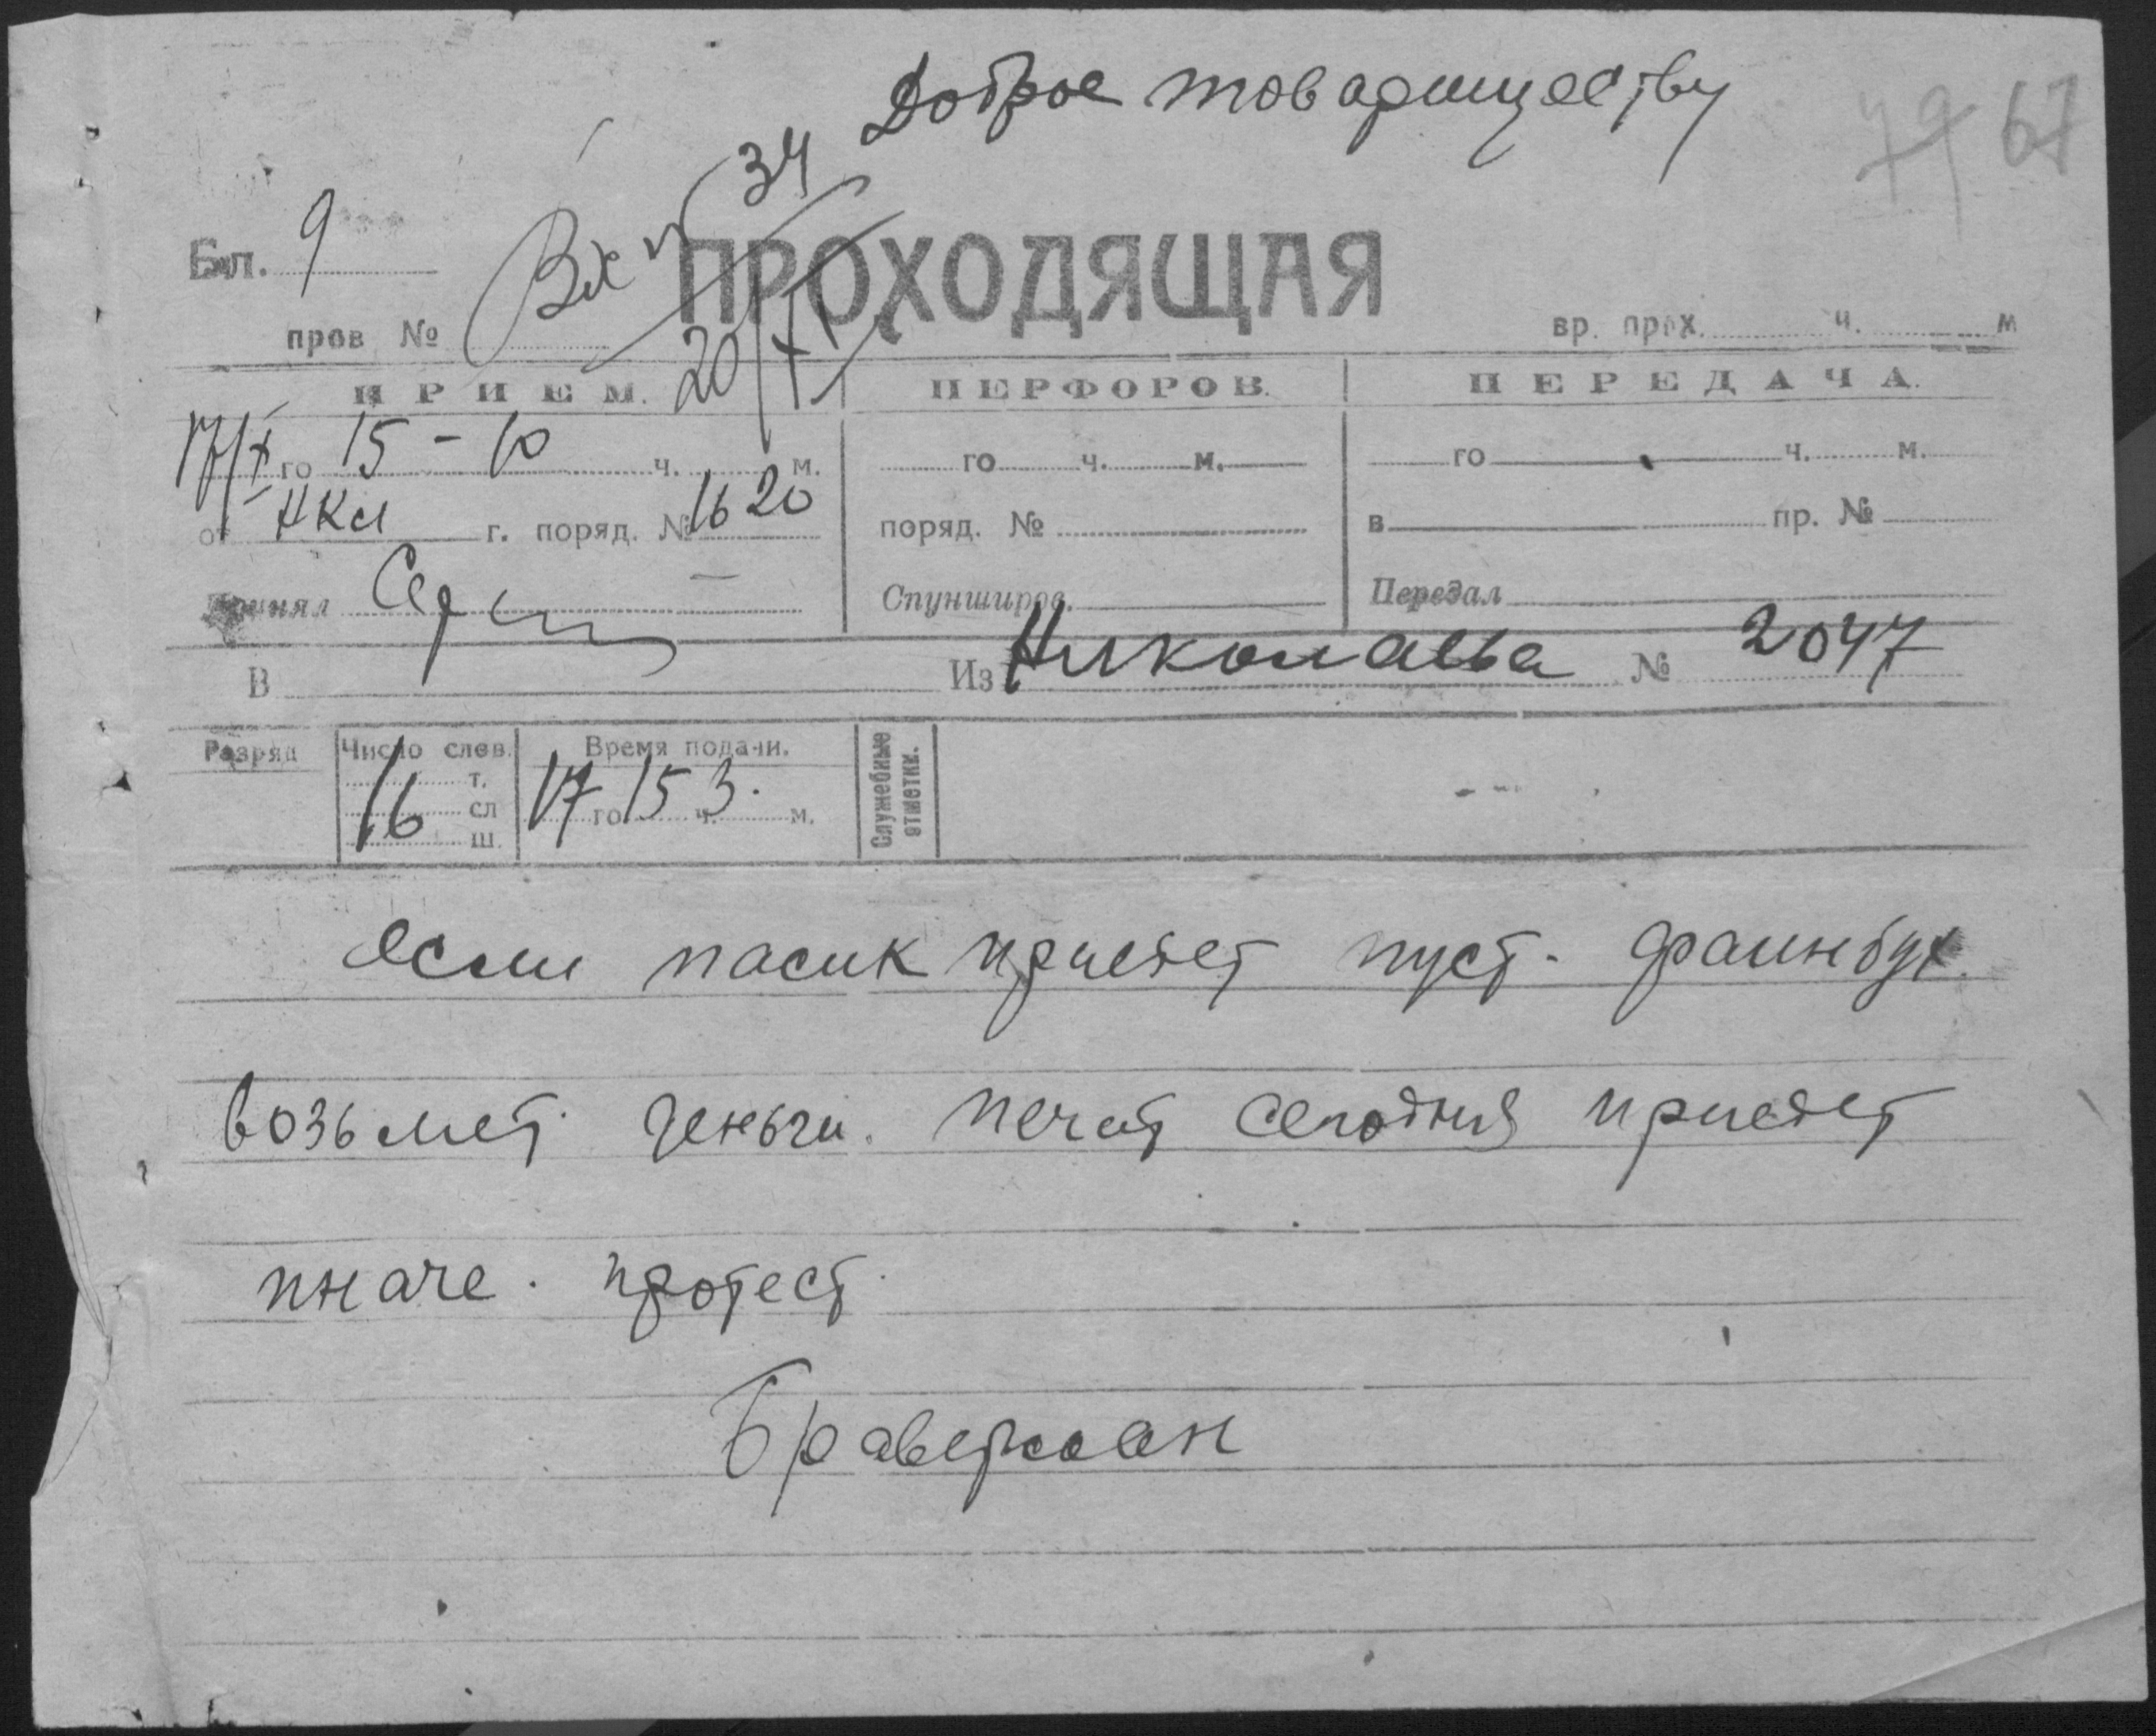 Доброе товариществу
79 67
34
Бл. 9
Вх №
ПРОХОДЯЩАЯ
пров №
20/XI
вр. прох. ч. м
ПРИЕМ. ПЕРФОРОВ. ПЕРЕДАЧА.
17/X го 15-10 ч. м. го ч. м. го ч. м.
от НКЛ г. поряд. № 1620 поряд. № в пр. №
Принял Спунширов. Передал
В Из Николаева № 2047
Разряд Число слов. Время подачи. Служебные отметки.
16 т. сл ш. 17 го 15 ч. 3. м.
если пасик приедет пуст. фаинбух.
возьмет деньги. печат сегодня приедет
иначе. протест.
Браверман